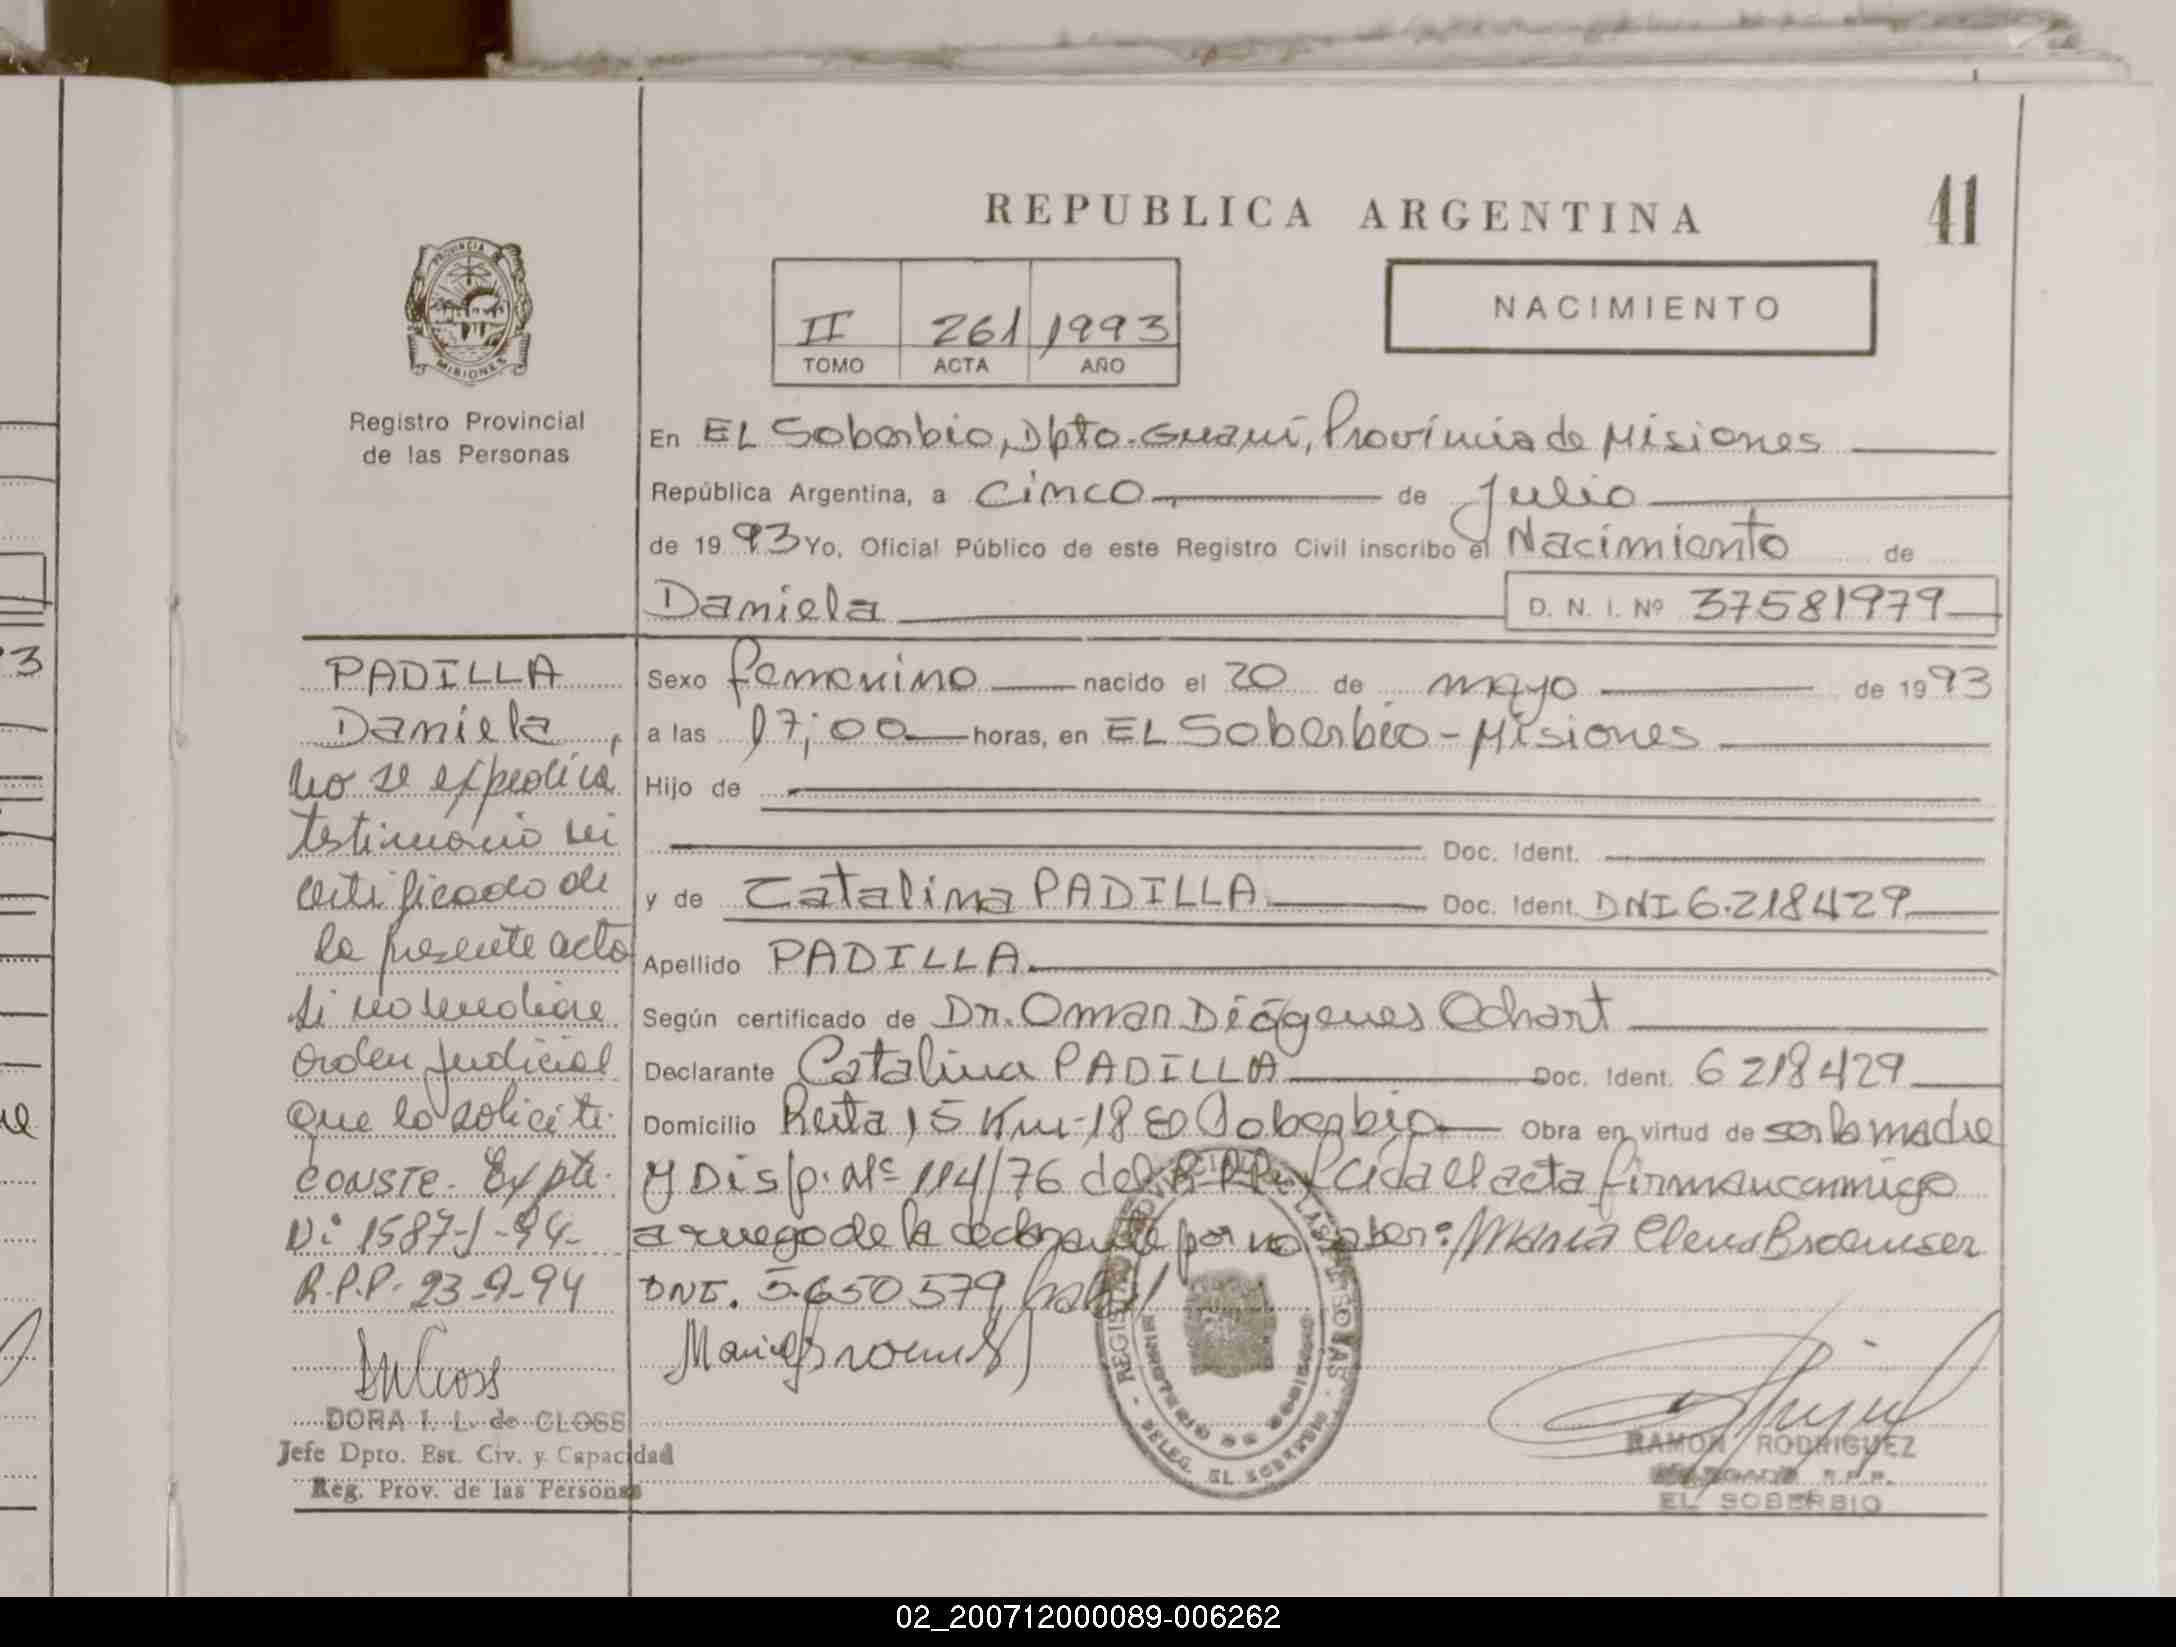 REPUBLICA ARGENTINA
41
NACIMIENTO
II 261 1993
TOMO ACTA AÑO
PROVINCIA DE
MISIONES
Registro Provincial
de las Personas
En EL Soberbio, Dpto. Guaraní, Provincia de Misiones
República Argentina, a Cinco de Julio
de 1993 Yo, Oficial Público de este Registro Civil inscribo el Nacimiento de
Daniela D. N. I. Nº 37581979
PADILLA
Daniela,
No se expedirá
testimonio ni
certificado de
la presente acta
si no mediare
orden judicial
que lo solicite.
CONSTE. Expte.
N: 1587-J-94-
R.P.P. 23-9-94
DORA I. L. de CLOSS
Jefe Dpto. Est. Civ. y Capacidad
Reg. Prov. de las Personas
Sexo femenino nacido el 20 de mayo de 1993
a las 17;00 horas, en EL Soberbio - Misiones
Hijo de
Doc. Ident.
y de Catalina PADILLA Doc. Ident. DNI 6.218429
Apellido PADILLA
Según certificado de Dr. Omar Diógenes Ochart
Declarante Catalina PADILLA Doc. Ident. 6218429
Domicilio Ruta 15 Km-18 El Soberbio Obra en virtud de ser la madre
y Disp. Nº 114/76 del R.P.P. Leída el acta firman conmigo
a ruego de la declarante por no saber: Maria Elena
DNI. 5.650.579
RAMON RODRIGUEZ
R.P.P.
EL SOBERBIO
DELEG. EL SOBERBIO
02_200712000089-006262